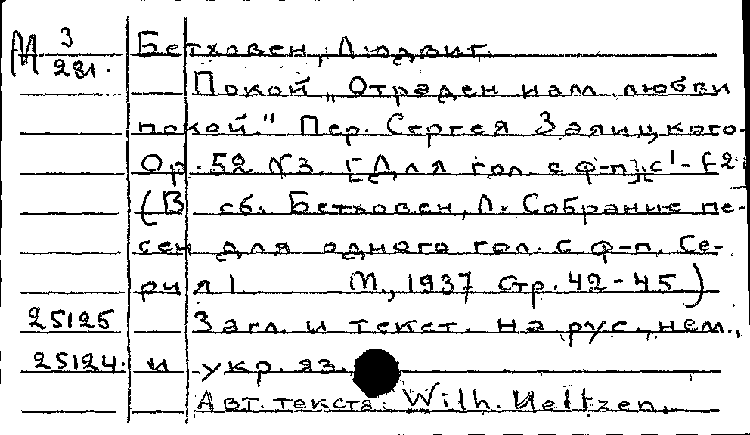 М 3/281. Бетховен, Людвиг.
Покой „Отраден нам любви
покой." Пер. Сергея Заяицкого.
Ор. 52 №3. [Для гол. с ф-п]. c¹-f2
(В сб. Бетховен, Л. Собрание пе-
сен для одного гол. с ф-п. Се-
рия 1. М., 1937 Стр. 42-45)
25125 Загл. и текст. на рус., нем.,
25124. и укр. яз.
Авт. текста: Wilh. Ueltzen.